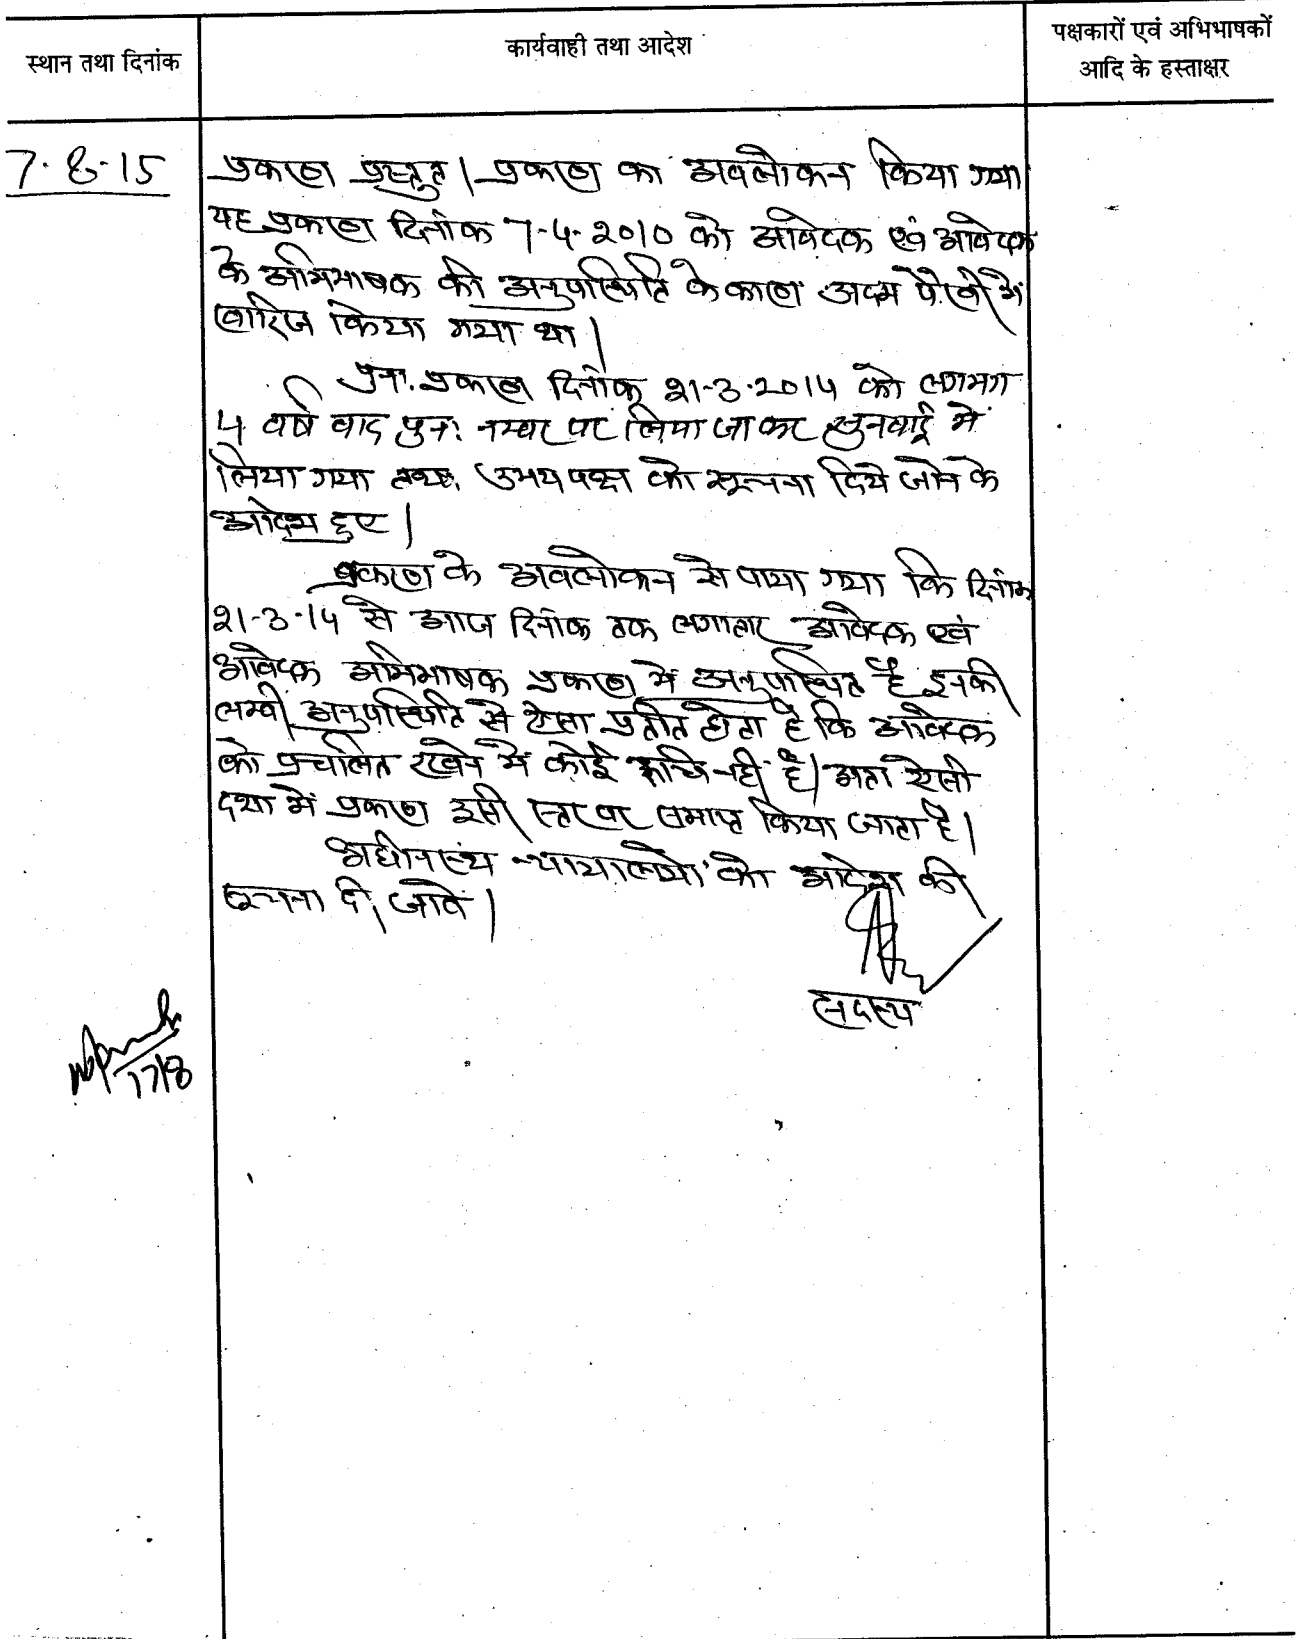 स्थान तथा दिनांक
कार्यवाही तथा आदेश
पक्षकारों एवं अभिभाषकों
आदि के हस्ताक्षर
7-8-15
प्रकरण प्रस्तुत। प्रकरण का अवलोकन किया गया
यह प्रकरण दिनांक 7-4-2010 को आवेदक एवं आवेदक
के अभिभाषक की अनुपस्थिति के कारण अदम पैरवी में
खारिज किया गया था।
पुनः प्रकरण दिनांक 21-3-2014 को लगभग
4 वर्ष बाद पुनः नम्बर पर लिया जाकर सुनवाई में
लिया गया तथा उभयपक्ष को सूचना दिये जाने के
आदेश हुए।
प्रकरण के अवलोकन से पाया गया कि दिनांक
21-3-14 से आज दिनांक तक लगातार आवेदक एवं
आवेदक अभिभाषक प्रकरण में अनुपस्थित है इनकी
लम्बी अनुपस्थिति से ऐसा प्रतीत होता है कि आवेदक
को प्रचलित रखने में कोई रूचि नहीं है। अतः ऐसी
दशा में प्रकरण इसी स्तर पर समाप्त किया जाता है।
अधीनस्थ न्यायालयों को आदेश की
सूचना दी जावे।
सदस्य
17/8